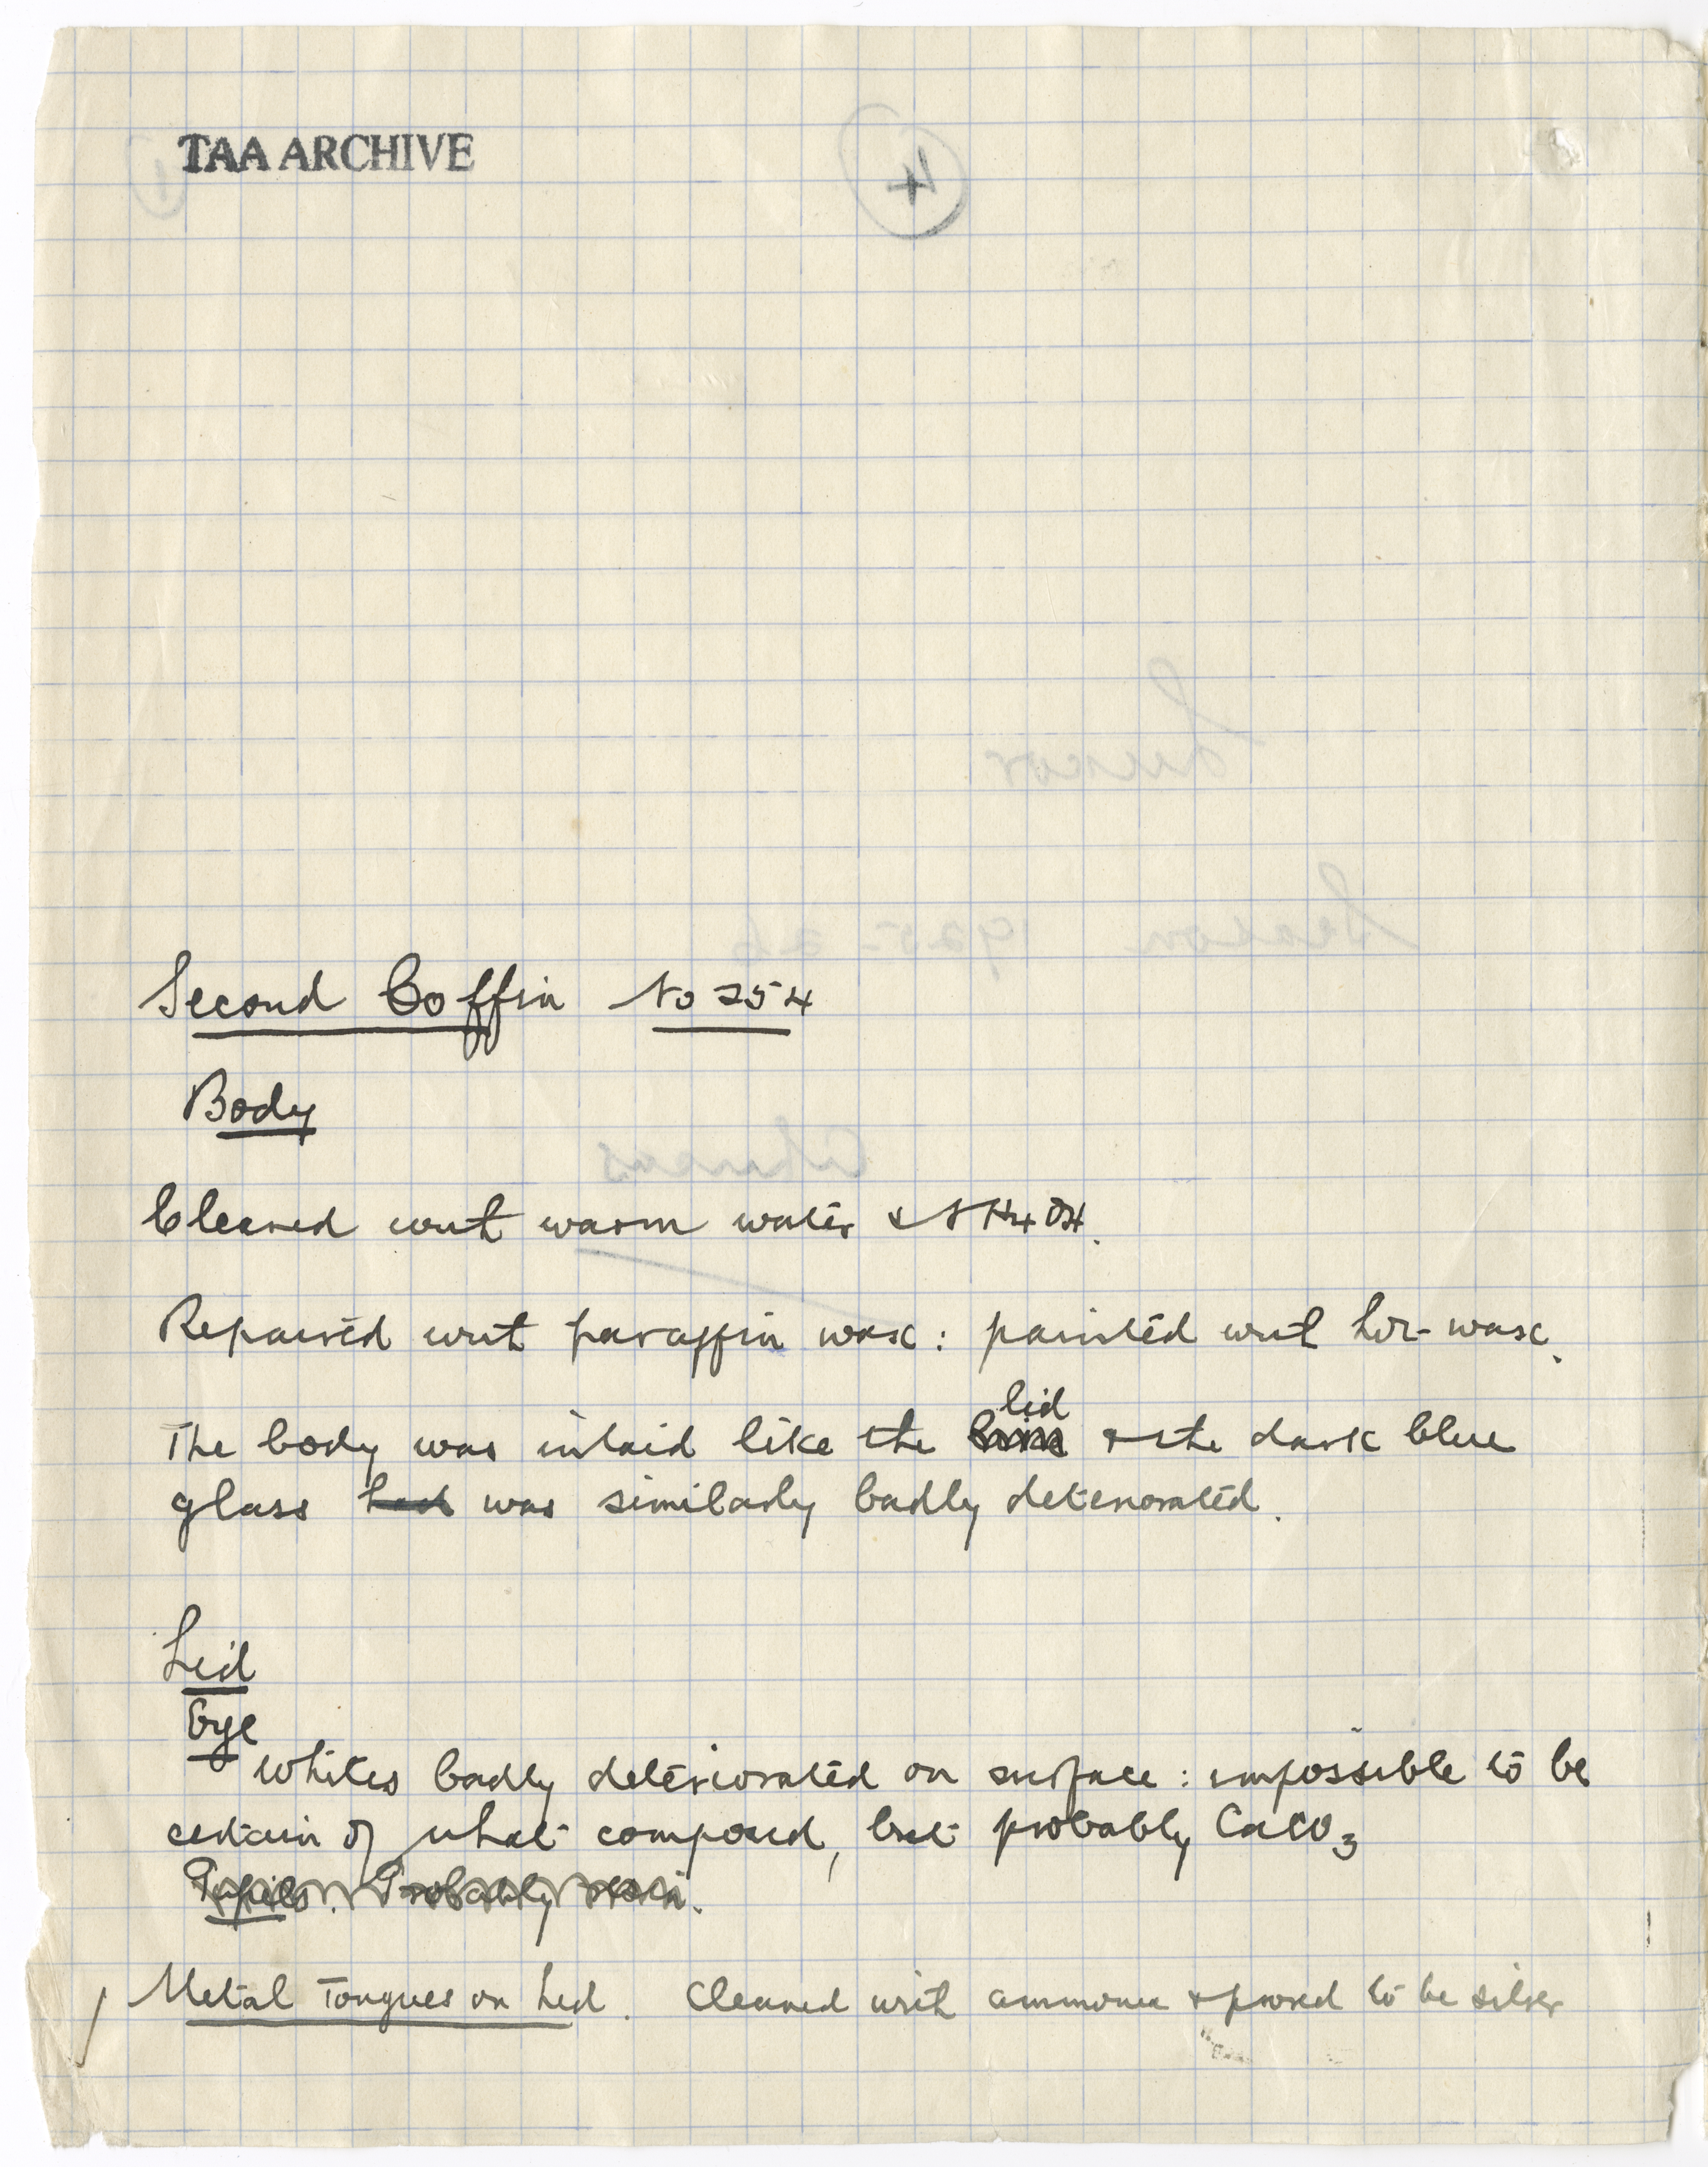 TAA ARCHIVE
4
Second Coffin No 254
Body
Cleaned with warm water & NH4OH.
Repaired with paraffin wax: painted with hot wax.
lid
The body was inlaid like the & the dark blue
glass had was similarly badly deteriorated.
Lid
Eye
Whites badly deteriorated on surface: impossible to be
certain of what composed, but probably CaCO3
Pupils. Probably resin.
Metal Tongues on Lid. Cleaned with ammonia & proved to be silver